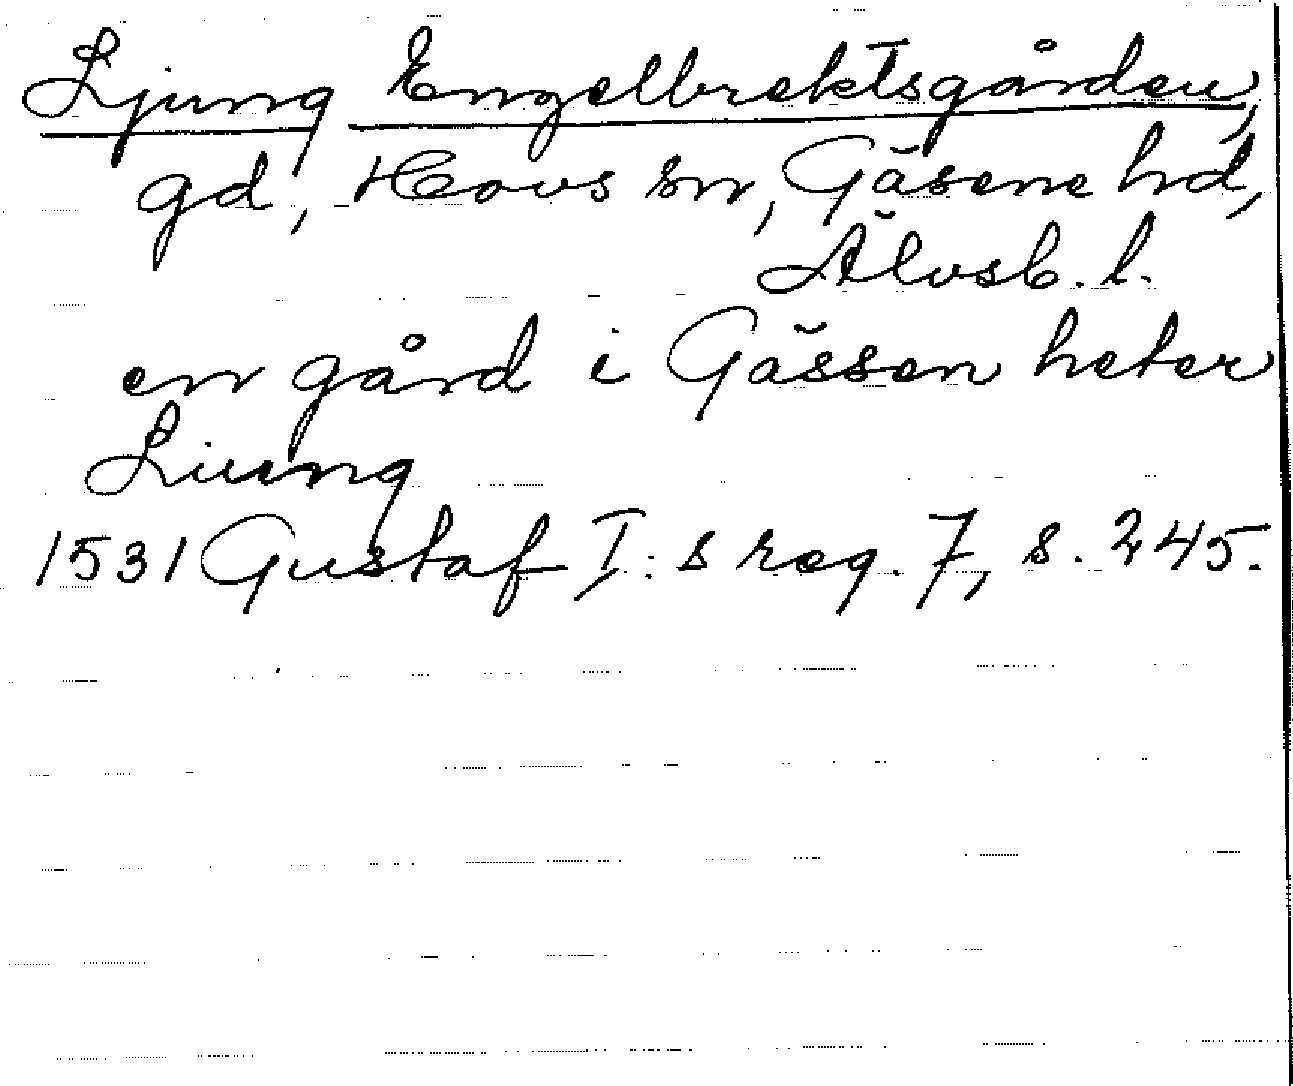 Ljung Engelbrektsgården,
gd, Hovs sn, Gäsene hd,
Älvsb. l.
en gård i Gässen heter
Liung
1531 Gustaf I:s reg. 7, s. 245.